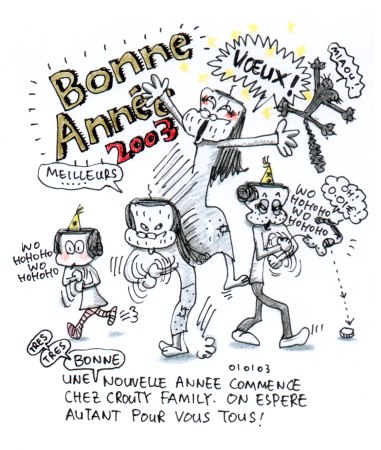 BONNE
ANNÉE
2003
MEILLEURS
VŒUX!
MIAOU!
WO
HOHOHO
WO
HOHOHO
WO
HOHOHO
WO
HOHOHO
TRES
TRES
BONNE
010103
UNE NOUVELLE ANNEE COMMENCE
CHEZ CROUTY FAMILY. ON ESPERE
AUTANT POUR VOUS TOUS!